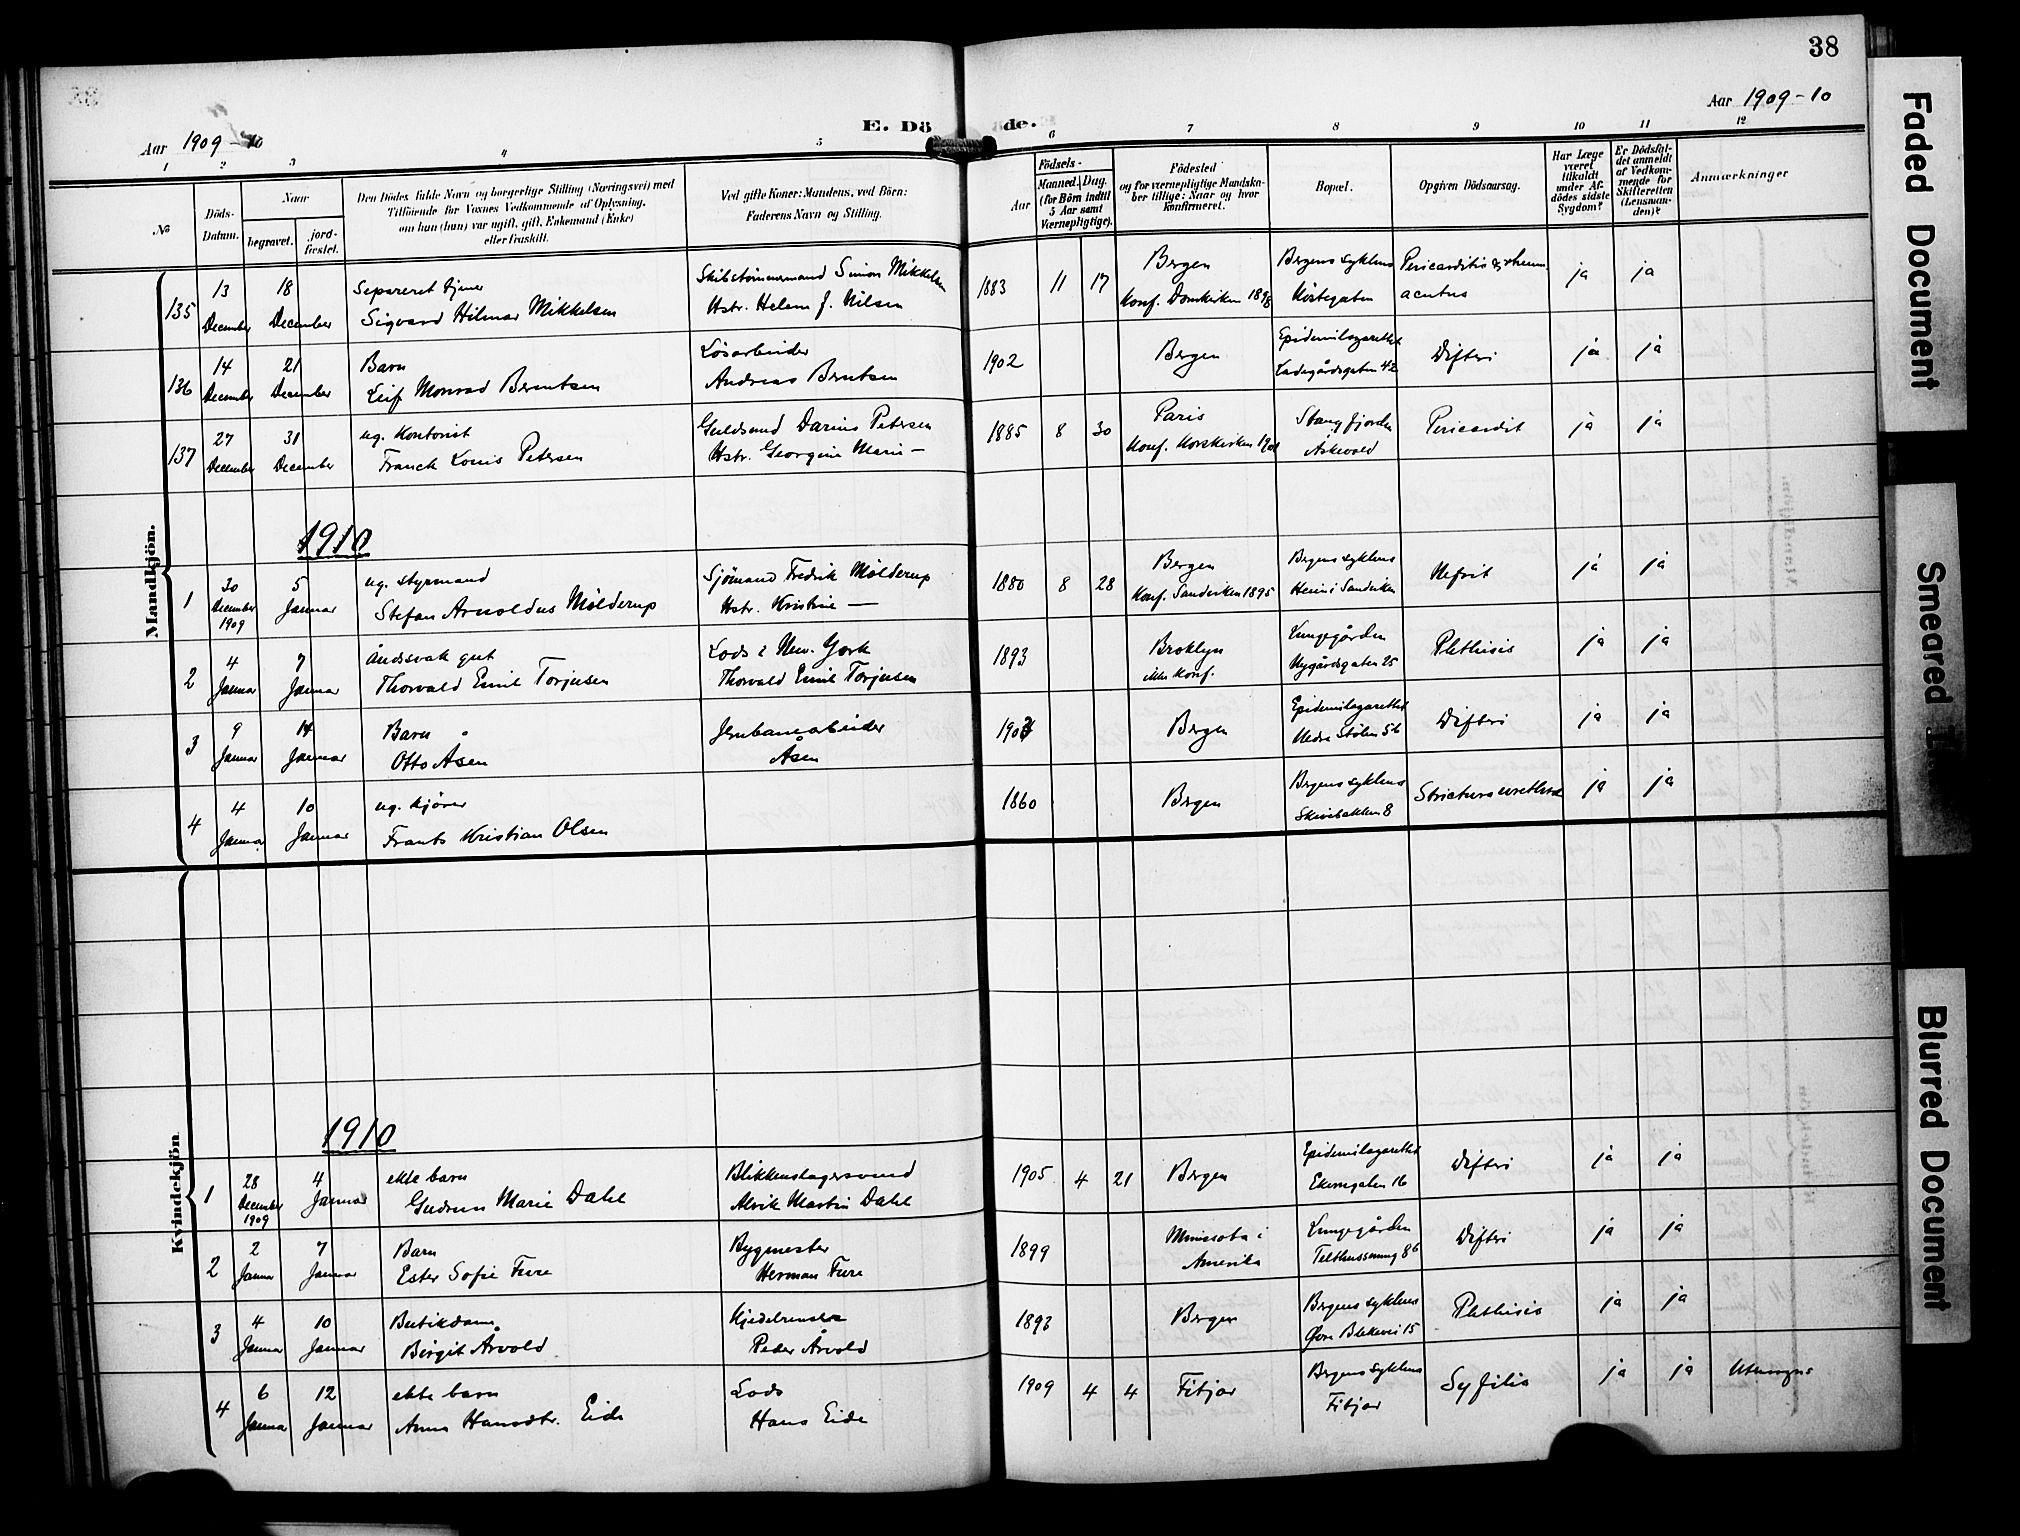 38
Aar 1909-10
E. Döde.
Aar 1909-10
1 2 3 4 5 6 7 8 9 10 11 12
No
Döds-Datum.
Naar
begravet.
jord-fæstet.
Den Dödes fulde Navn og borgerlige Stilling (Næringsvei) med
Tilföiende for Voxnes Vedkommende af Oplysning,
om han (hun) var ugift, gift, Enkemand (Enke)
eller fraskilt.
Ved gifte Koner: Mandens, ved Börn:
Faderens Navn og Stilling.
Födsels-
Aar
Maaned. Dag.
(for Börn indtil
5 Aar samt
Værnepligtige).
Födested
og for værnepligtige Mandska-
ber tillige: Naar og hvor
konfirmeret.
Bopæl.
Opgiven Dödsaarsag.
Har Læge
været
tilkaldt
under Af-
dödes sidste
Sygdom?
Er Dödsfal-
det anmeldt
af Vedkom-
mende for
Skifteretten
(Lensman-
den)?
Anmærkninger
Mandkjön.
135 13 December 18 December Separeret tjener
Sigvard Hilmar Mikkelsen
Skibstømmermand Simon Mikkelsen
Hstr. Helene J. Nilsen
1883 11 17 Bergen
Konf. Domkirken 1898
Bergens sykehus
Kostegaten
Pericarditis &
acutus
ja ja
136 14 December 21 December Barn
Leif Monrad Berntsen
Løsarbeider
Andreas Berntsen
1902 Bergen
Epidemilazarettet
Ladegårdsgaten 42
Difteri ja ja
137 27 December 31 December ug. Kontorist
Franck Louis Petersen
Guldsmed Darius Petersen
Hstr. Georgine Marie —
1885 8 30 Paris
Konf. Korskirken 1901
Stangfjorden
Askevold
Pericardit ja ja
1910
1 30 December 1909 5 Januar ug. styrmand
Stefan Arnoldus Mølderup
Sjömand Fredrik Mølderup
Hstr. Kristine —
1880 8 28 Bergen
Konf. Sandviken 1895
Bergens sykehus
Heien i Sandviken
Nefrit ja ja
2 4 Januar 7 Januar åndssvak gut
Thorvald Emil Torjusen
Lods i New York
Thorvald Emil Torjusen
1893 Broklyn
ikke Konf.
Lungegården
Nygårdsgaten 25
Phthisis ja ja
3 9 Januar 14 Januar Barn
Otto Åsen
Jernbanearbeider
Åsen
Bergen
Epidemilazarettet
Nedre Stølen 56
Difteri ja ja
4 4 Januar 10 Januar ug. kjører
Frants Kristian Olsen
1860 Bergen
Bergens sykehus
Skivebakken 8
Strictura urethrae ja ja
Kvindekjön
1910
1 28 December 1909 4 Januar ekte barn
Gudrun Marie Dahl
Blikkenslagersvend
Alvik Martin Dahl
1905 4 21 Bergen
Epidemilazarettet
Ekerengaten 16
Difteri ja ja
2 2 Januar 7 Januar Barn
Ester Sofie Fure
Bygmester
Herman Fure
1899 Minnesota i
Amerika
Lungegården
Telthussmug 8b
Difteri ja ja
3 4 Januar 10 Januar Butikdame
Birgit Årvold
Kjedelrenser
Peder Årvold
1893 Bergen
Bergens sykehus
Øvre Blekevei 15
Phthisis ja ja
4 6 Januar 12 Januar ekte barn
Anna Hansdtr. Eide
Lods
Hans Eide
1909 4 4 Fitjar
Bergens sykehus
Fitjar
Syfilis ja ja Utensogns
Faded Document
Smeared
Blurred Document